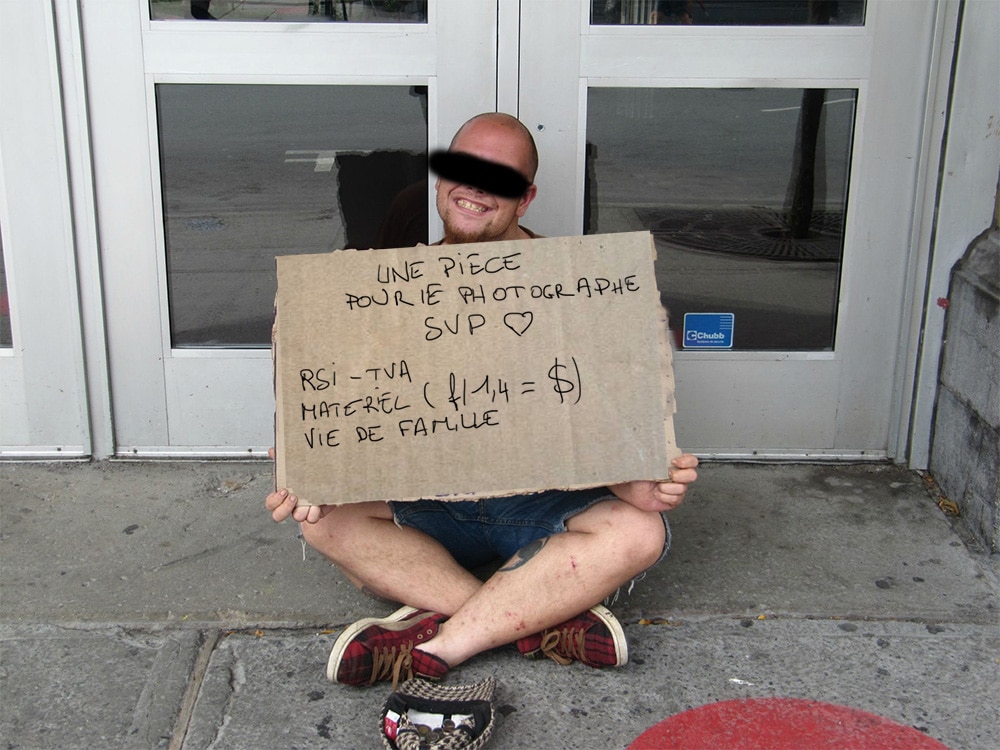 UNE PIÈCE
POUR lE PHOTOGRAPHE
SVP ♡
RSI - TVA
MATERIEL ( f/1,4 = $)
VIE DE FAMILLE
Chubb